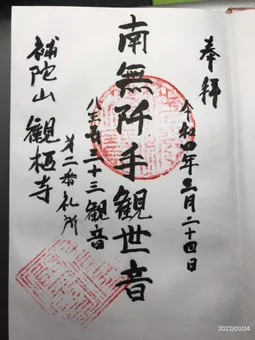 奉拝
令和四年三月二十四日
南無阡手観世音
八王子三十三観音
第二番札所
補陀山 観栖寺
2022/03/24